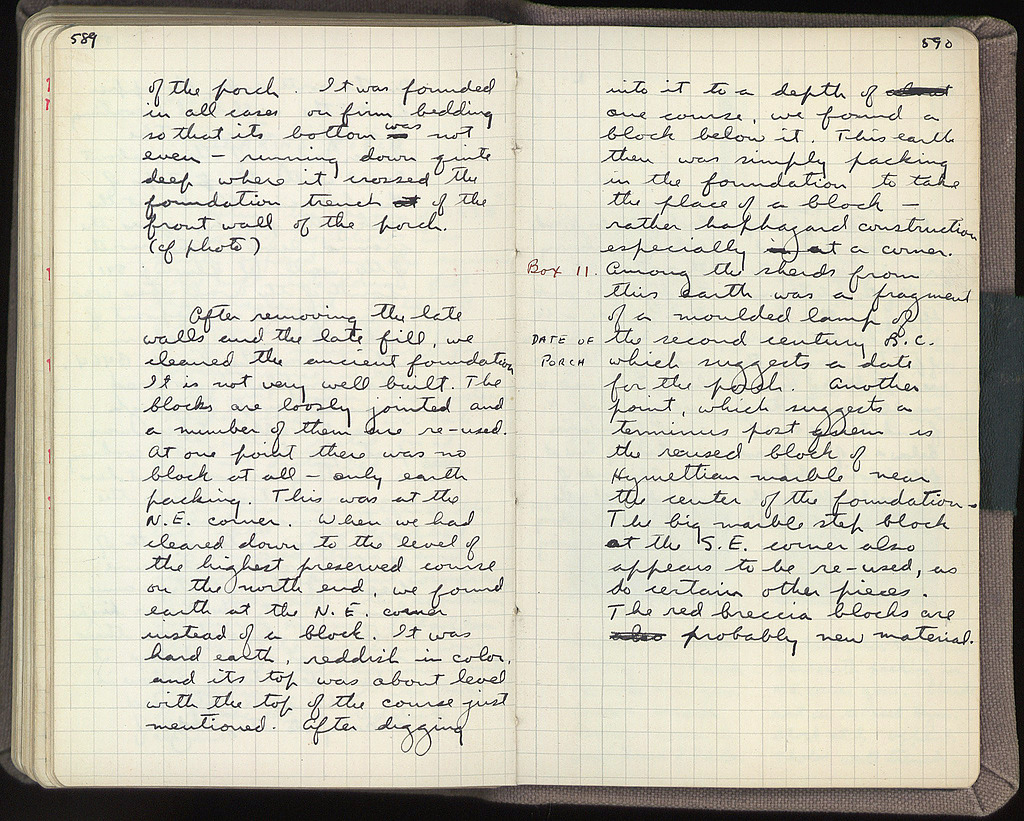 589
of the porch. It was founded
in all cases on firm bedding
so that its bottom was not
even – running down quite
deep where it crossed the
foundation trench of the
front wall of the porch.
(cf photo)
After removing the late
walls and the late fill, we
cleaned the ancient foundation
It is not very well built. The
blocks are loosly jointed and
a number of them are re-used.
At one point there was no
block at all – only earth
packing. This was at the
N.E. corner. When we had
cleared down to the level of
the highest preserved course
on the north end, we found
earth at the N.E. corner
instead of a block. It was
hard earth, reddish in color,
and its top was about level
with the top of the course just
mentioned. After digging
590
into it to a depth of about
one course, we found a
block below it. This earth
then was simply packing
in the foundation to take
the place of a block –
rather haphazard construction
especially in at a corner.
Box 11. Among the sherds from
this earth was a fragment
of a moulded lamp of
DATE OF PORCH
the second century B.C.
which suggests a date
for the porch. Another
point, which suggests a
terminus post quem is
the reused block of
Hymettian marble near
the center of the foundation.
The big marble step block
at the S.E. corner also
appears to be re-used, as
do certain other pieces.
The red breccia blocks are
also probably new material.